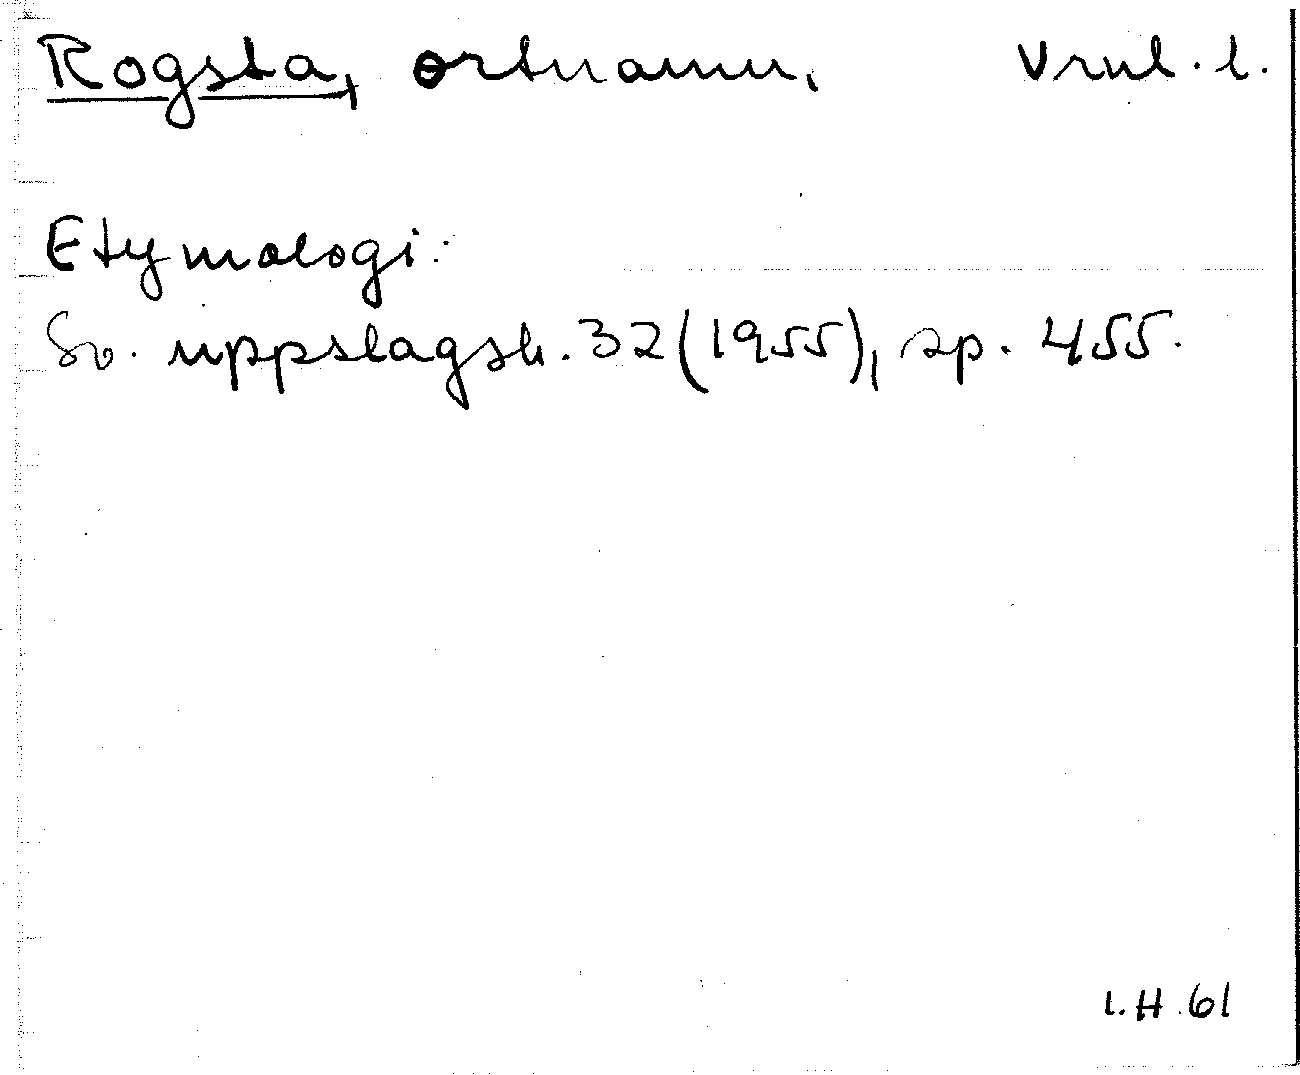 Rogsta, ortnamn, Vrml. l.
Etymologi:
Sv. uppslagsb. 32 (1955), sp. 455.
I.H. 61